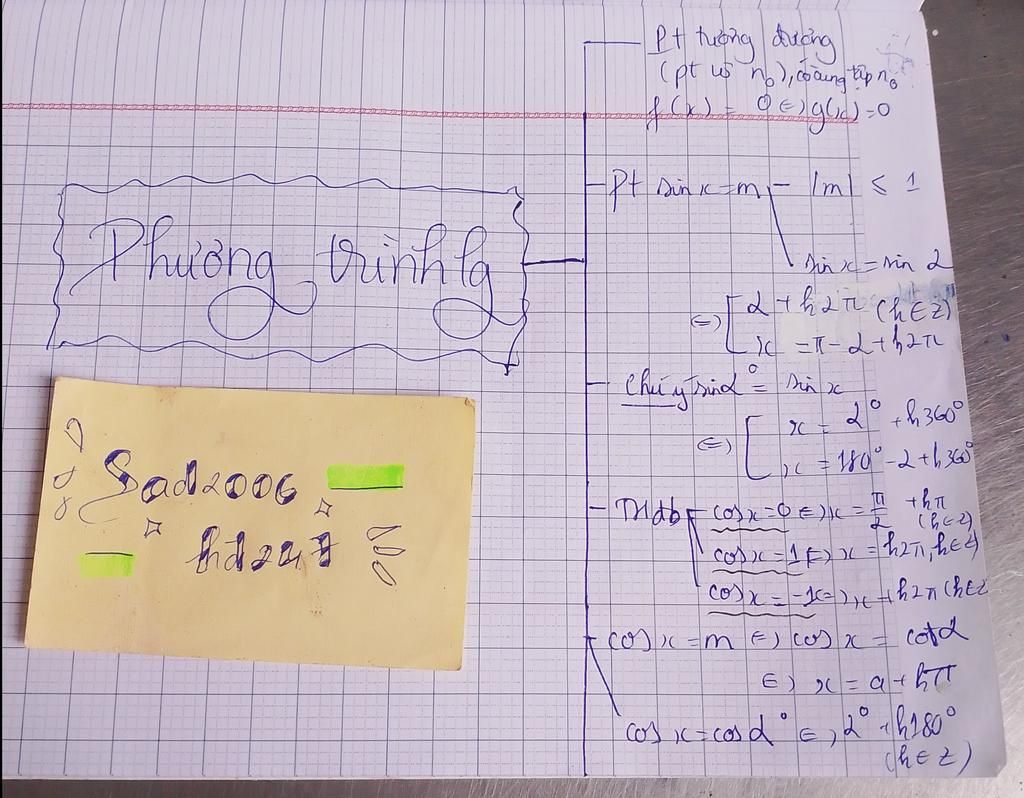 Phương trình lg
Sad2006
hd247
Pt tương đương
(pt vô n₀), có cùng tập n₀
f(x) = 0 ⇔ g(x) = 0
Pt sin x = m — |m| ≤ 1
sin x = sin α
⇔ [ α + k2π (k ∈ Z)
x = π - α + k2π
Chú ý sin α° = sin x
⇔ [ x = α° + k360°
x = 180° - α + k360°
THđb cos x = 0 ⇔ x = π/2 + kπ
(k ∈ Z)
cos x = 1 ⇔ x = k2π, k ∈ Z
cos x = -1 ⇔ x + k2π (k ∈ Z
cos x = m ⇔ cos x = cot α
⇔ x = a + kπ
cos x = cos α° ⇔ α° + k180°
(k ∈ Z)